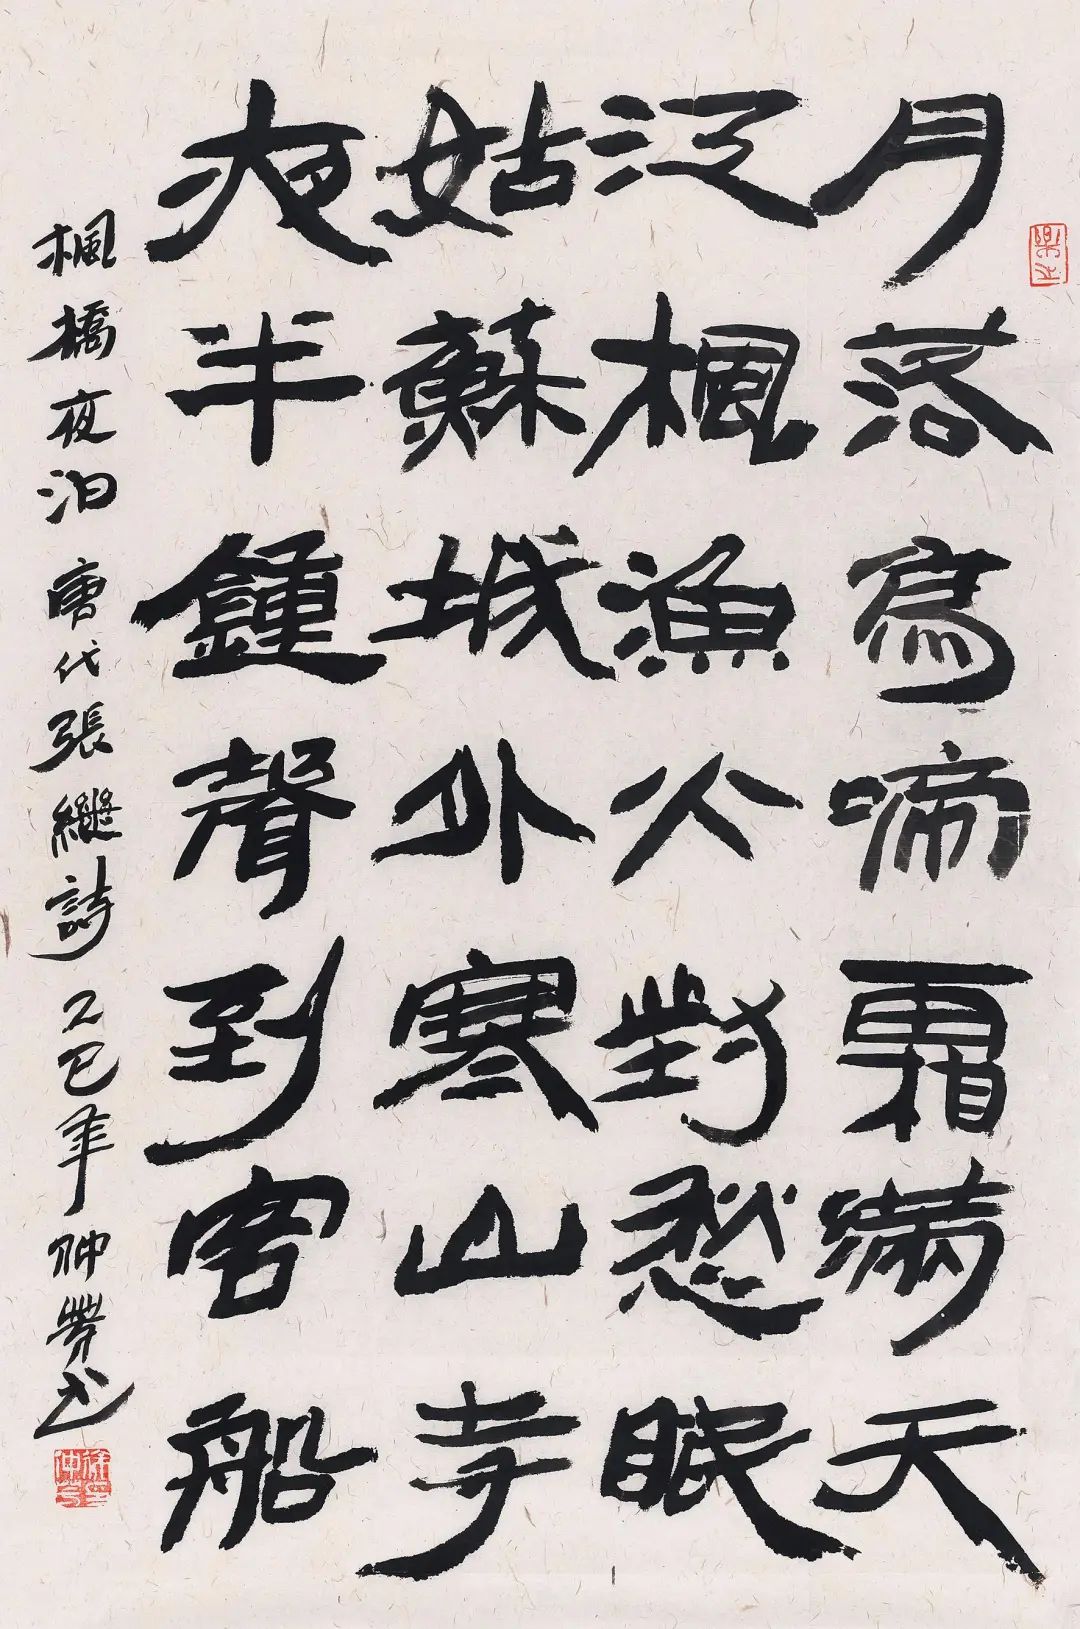 月落烏啼霜滿天
江楓漁火對愁眠
姑蘇城外寒山寺
夜半鍾聲到客船
楓橋夜泊 唐代張繼詩 乙巳年 仲勞書